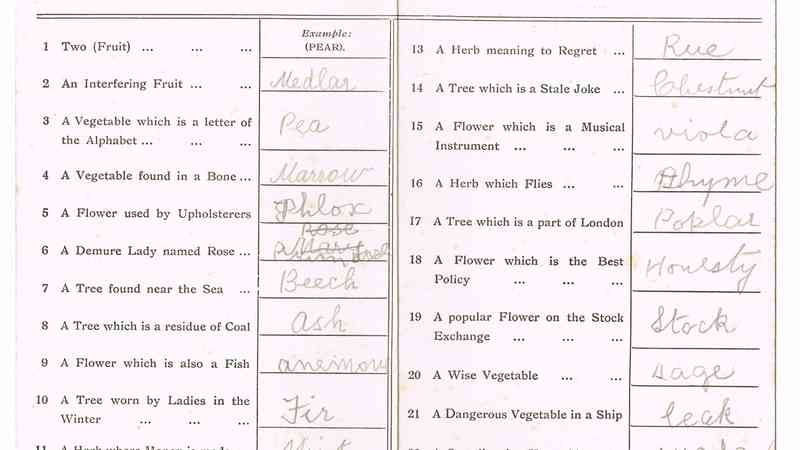 Example:
1 Two (Fruit) ... ... ... (PEAR).
2 An Interfering Fruit ... ... Medlar
3 A Vegetable which is a letter of
the Alphabet ... ... ... Pea
4 A Vegetable found in a Bone ... Marrow
5 A Flower used by Upholsterers Phlox
Rose
6 A Demure Lady named Rose ... Mary
7 A Tree found near the Sea ... Beech
8 A Tree which is a residue of Coal Ash
9 A Flower which is also a Fish anemony
10 A Tree worn by Ladies in the
Winter ... ... ... Fir
Mint
13 A Herb meaning to Regret ... Rue
14 A Tree which is a Stale Joke ... Chestnut
15 A Flower which is a Musical
Instrument ... ... ... viola
16 A Herb which Flies ... ... Thyme
17 A Tree which is a part of London Poplar
18 A Flower which is the Best
Policy ... ... ... Honesty
19 A popular Flower on the Stock
Exchange ... ... ... Stock
20 A Wise Vegetable ... ... sage
21 A Dangerous Vegetable in a Ship leak